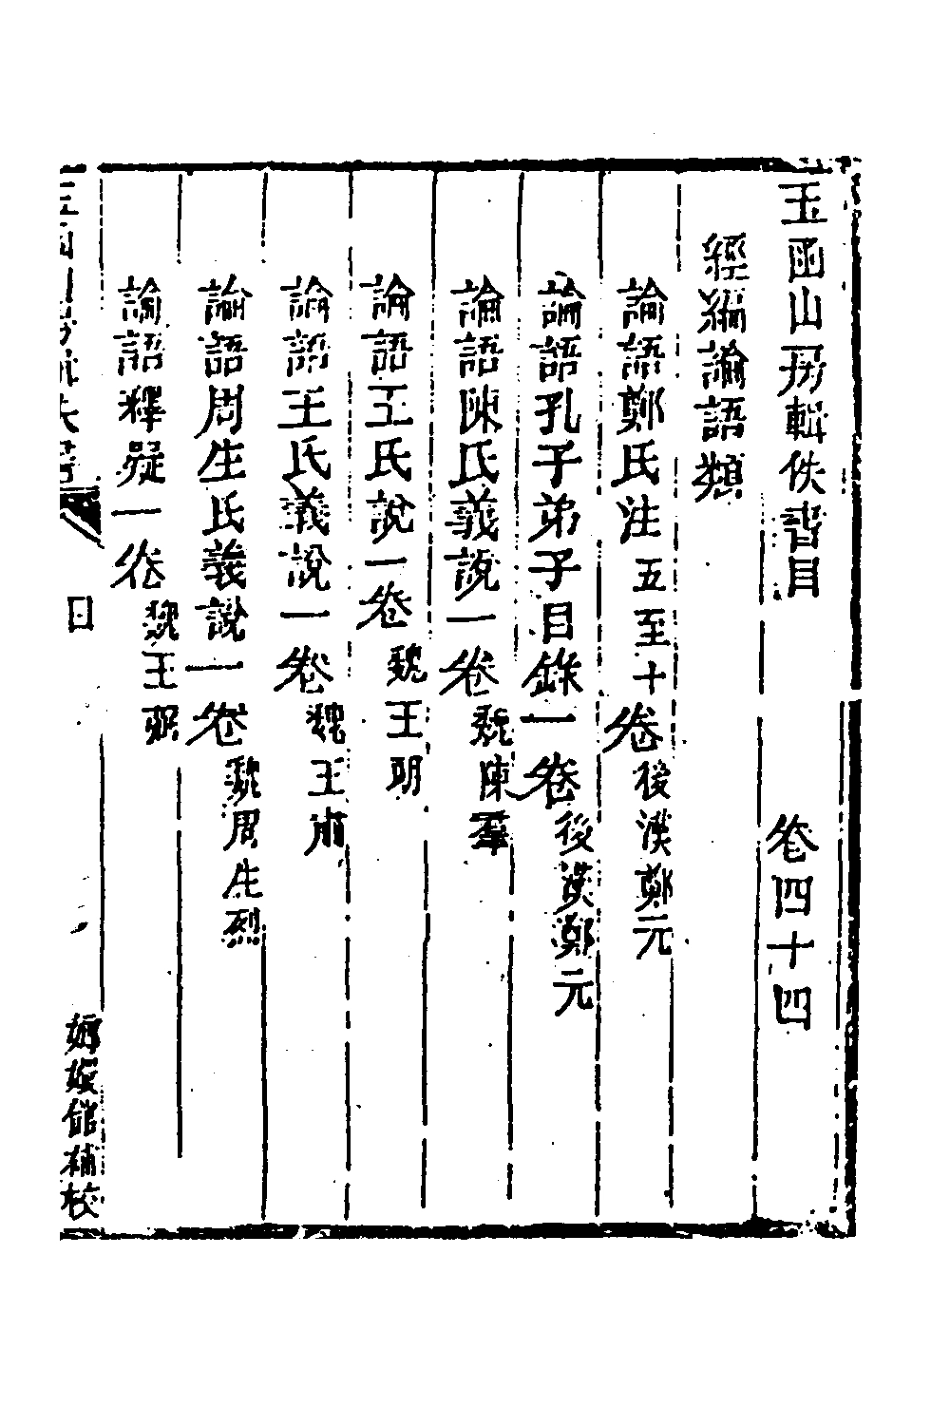 玉函山房輯佚書目 卷四十四
經編論語類
論語鄭氏注五至十卷後漢鄭元
論語孔子弟子目錄一卷後漢鄭元
論語陳氏義說一卷魏陳羣
論語王氏說一卷魏王朗
論語王氏義說一卷魏王肅
論語周生氏義說一卷魏周生烈
論語釋疑一卷魏王弼
目 嫏嬛館補校